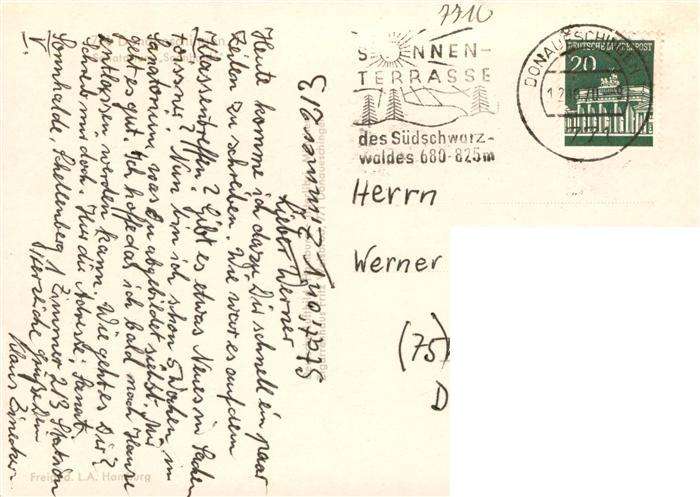 7710
SONNEN-
TERRASSE
des Südschwarz-
waldes 680-825m
DONAUESCHI
771
DEUTSCHE BUNDESPOST
20
Herrn
Werner
(75)
D
Lieber Werner
Heute komme ich dazu Dir schnell ein paar
Zeilen zu schreiben. Wie war es auf dem
Klassentreffen? Gibt es etwas Neues in Sachen
? Nun bin ich schon 5 Wochen im
Sanatorium was Du abgebildet siehst. Mir
geht es gut. Ich hoffe das ich bald nach Hause
entlassen werden kann. Wie geht es Dir?
Schreib mir doch. Hier die Adresse: Sanat.
Sonnhalde, Schellenberg 1 Zimmer 213 Station
V. Herzliche Grüße Dein
Klaus
Freigd. d. L.A. Hamburg